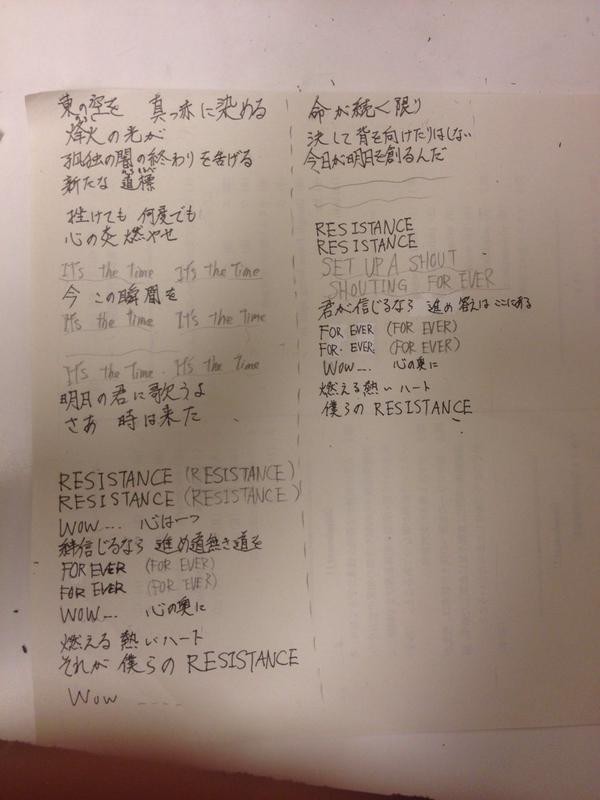 東の空を 真っ赤に染める
烽火の光が
孤独の闇の終わりを告げる
新たな 道標
挫けても 何度でも
心の炎 燃やせ
It's the time It's the time
今 この瞬間を
It's the time It's the time
It's the time It's the time
明日の君に歌うよ
さあ 時は来た
RESISTANCE (RESISTANCE)
RESISTANCE (RESISTANCE)
WOW... 心は一つ
絆信じるなら 進め道無き道を
FOR EVER (FOR EVER)
FOR EVER (FOR EVER)
WOW... 心の奥に
燃える 熱いハート
それが 僕らの RESISTANCE
WOW ....
命が続く限り
決して背を向けたりはしない
今日が明日を創るんだ
RESISTANCE
RESISTANCE
SET UP A SHOUT
SHOUTING FOR EVER
君が信じるなら 進め 答えは ここにある
FOR EVER (FOR EVER)
FOR EVER (FOR EVER)
WOW... 心の奥に
燃える 熱い ハート
僕らの RESISTANCE